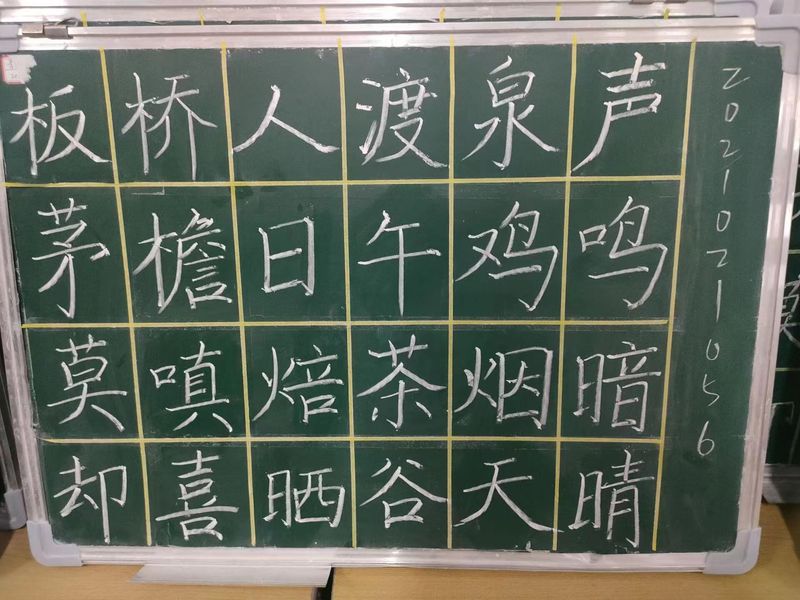 板桥人渡泉声
茅檐日午鸡鸣
莫嗔焙茶烟暗
却喜晒谷天晴
2021021056